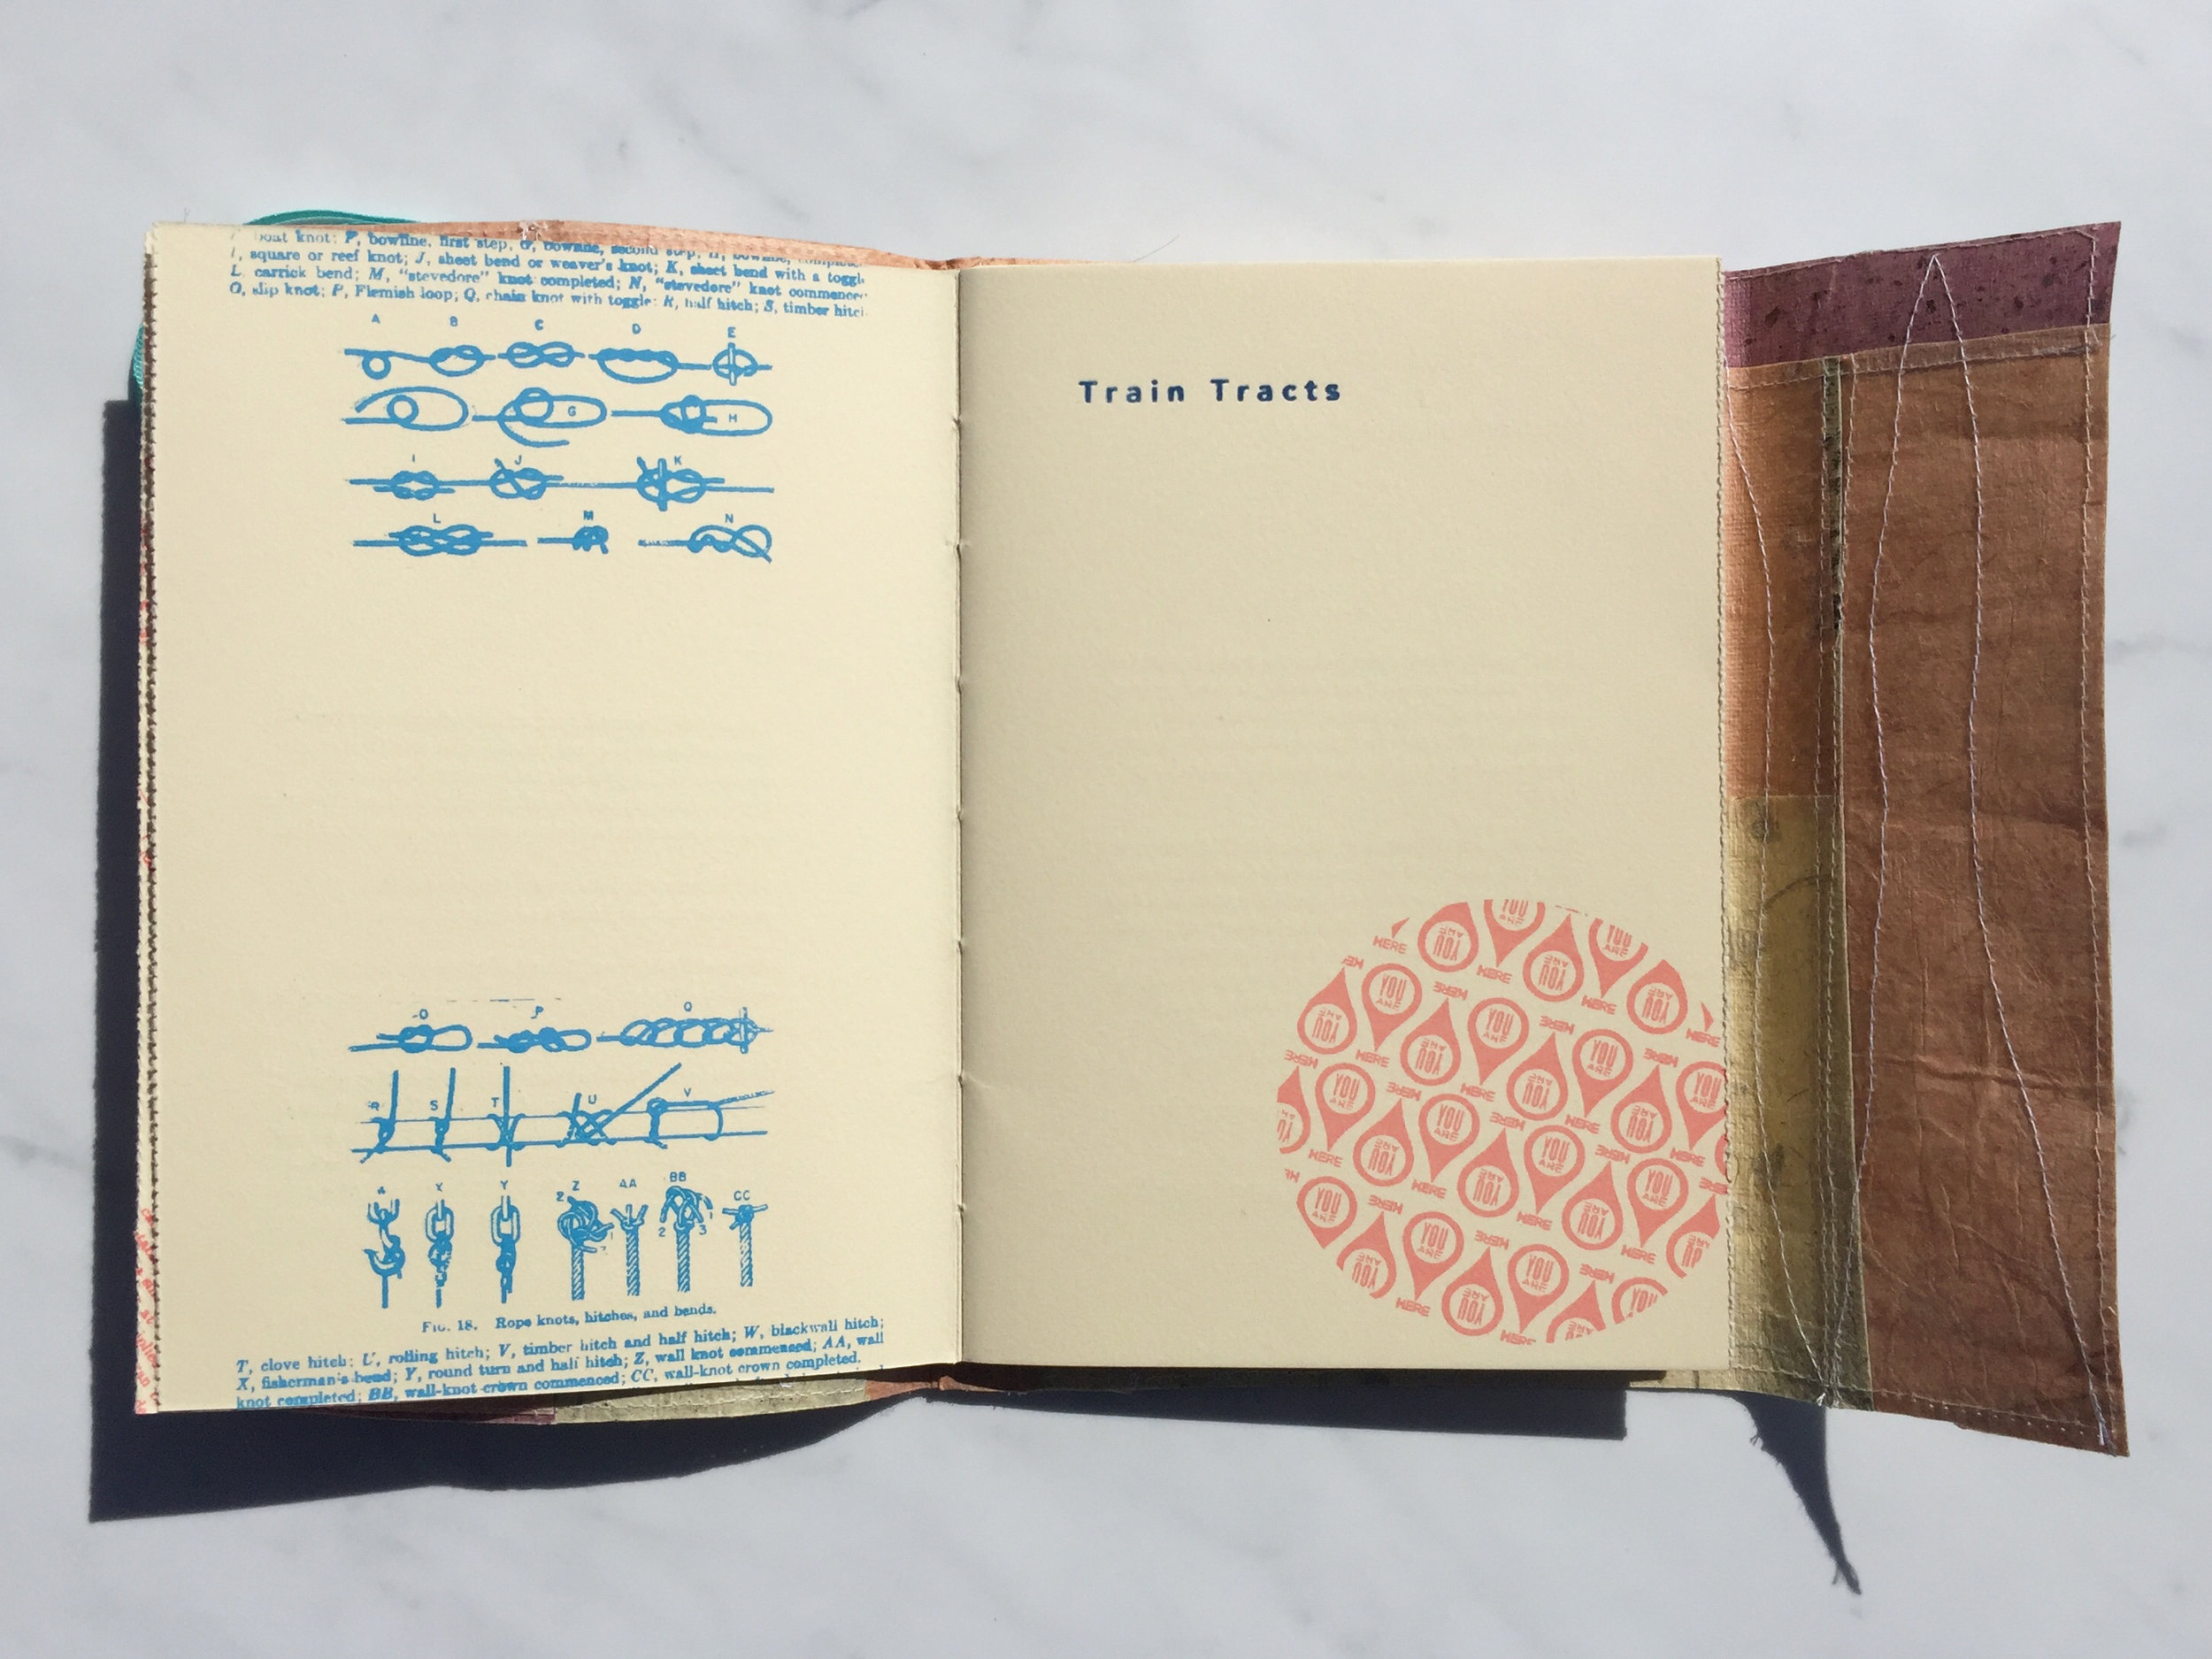 boat knot; F, bowline, first step, G, bowline, second step, H, bowline,
I, square or reef knot; J, sheet bend or weaver's knot; K, sheet bend with a toggle
L, carrick bend; M, "stevedore" knot completed; N, "stevedore" knot commenced
O, slip knot; P, Flemish loop; Q, chain knot with toggle; R, half hitch; S, timber hitch
A B C D E
G H
I J K
L M N
O P Q
R S T U V
X Y Z AA BB CC
2 2 3
FIG. 18. Rope knots, hitches, and bends.
T, clove hitch; U, rolling hitch; V, timber hitch and half hitch; W, blackwall hitch;
X, fisherman's bend; Y, round turn and half hitch; Z, wall knot commenced; AA, wall
knot completed; BB, wall-knot crown commenced; CC, wall-knot crown completed.
Train Tracts
YOU ARE HERE